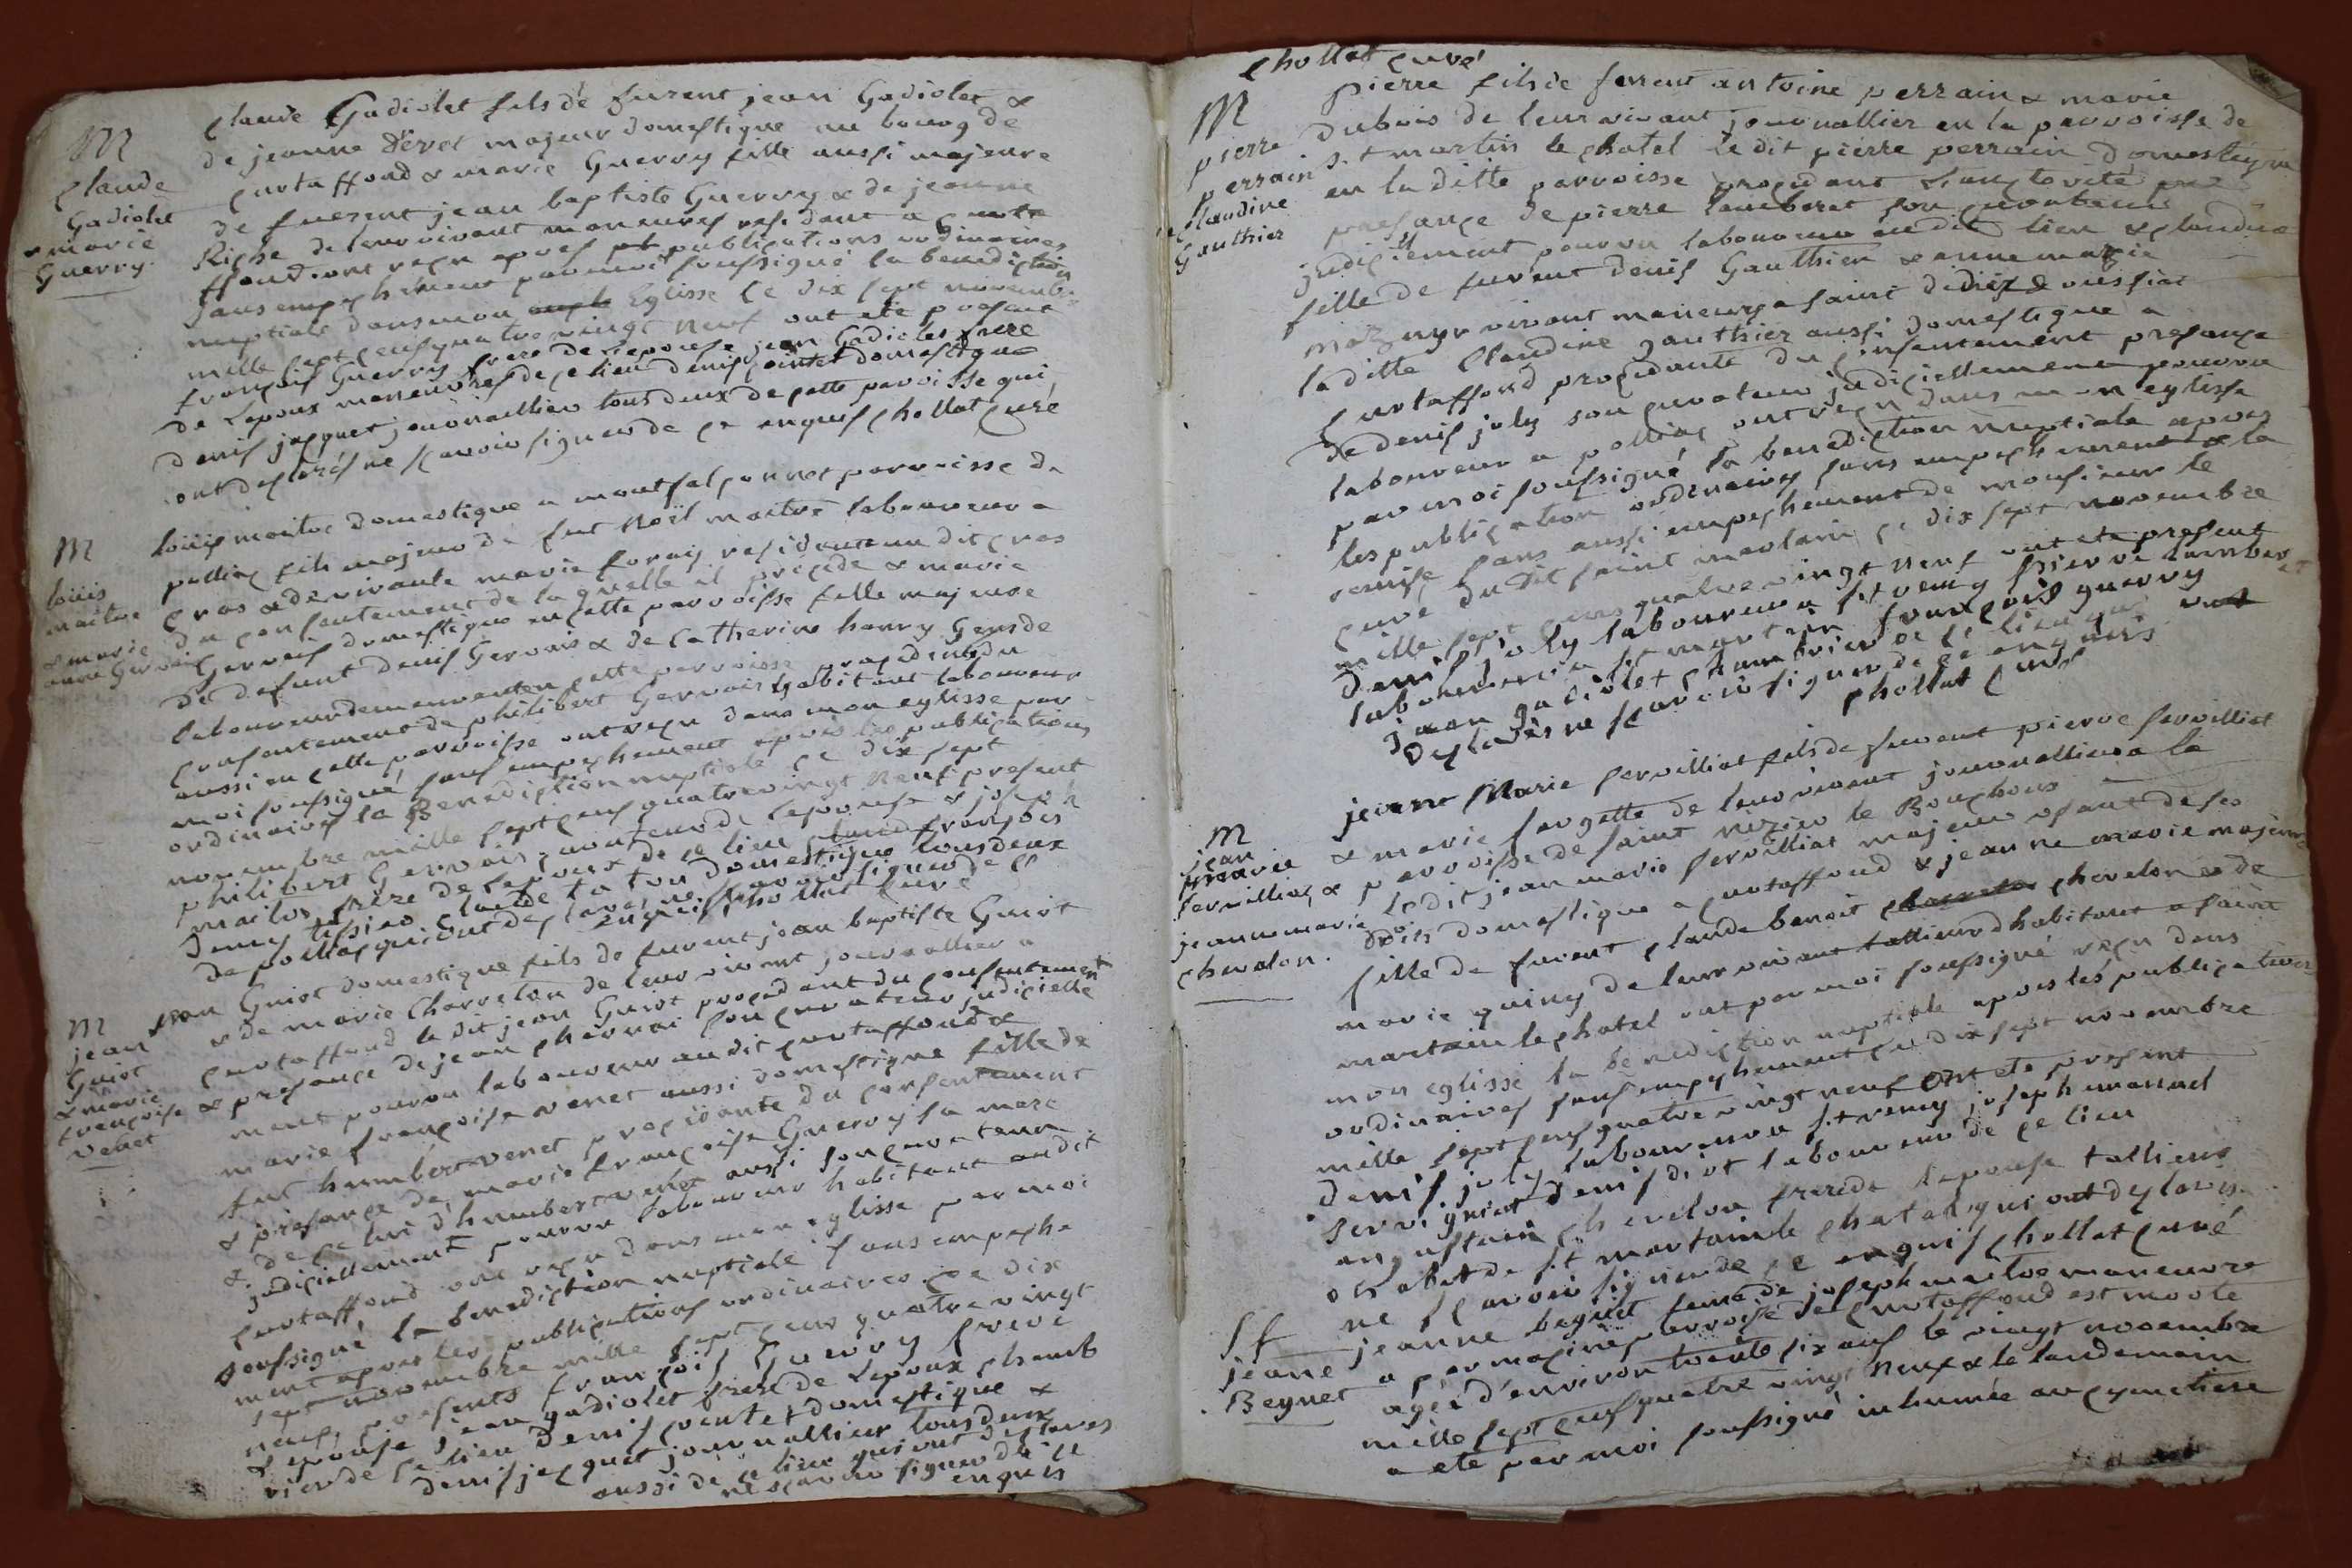 M
Claude
Gadiolet
& marie
Guerry.
Claude Gadiolet fils de furent jean Gadiolet &
de jeanne Deret majeur domestique au bourg de
curtaffond & marie Guerry fille aussi majeure
de fuerent jean baptiste Guerry & de jeanne
Riche de leur vivant manœuvres residant a curta
ffond ont reçu apres publications ordinaires
sans empechement par moi soussigné la benediction
nuptiale dans mon Eglisse ce dix sept novembre
mille sept cens quatre vingt neuf ont ete present
françois Guerry frere de lepouse jean Gadiolet frere
de lepoux maneuvres de ce lieu denis pointet domestique
denis jacquet journallier tous deux de cette paroisse qui
ont declarés ne scavoir signer de ce enquis chollat Curé
M
loüis
maitre
& marie
anne Gervais
loüis maitre domestique a montfalconnet parroisse de
polliac fils majeur de fut Noël maitre laboureur a
cros & de vivante marie forais residante au dit cros
du consentement de laquelle il procede & marie
Gervais domestique en cette parroisse fille majeure
de defunt denis Gervais & de Catherine harry Gens de
laboureur demeurant en cette parroisse procedente du
consentement de philibert Gervais habitant laboureur
aussi en cette parroisse ont reçu dans mon eglisse par
moi soussigné sans empechement apres les publications
ordinaires la Benediction nuptiale ce dix sept
novembre mille sept cens quatre vingt Neuf present
philibert Gervais curateur de lepouse & joseph
maitre frere de lepoux de ce lieu françois
denis tissier claude taton domestique tous deux
de polliac qui ont declarés ne scavoir signer de ce
enquis chollat Curé
M
jean
Guiot
& marie
françoise
venet
jean Guiot domestique fils de furent jean baptiste Guiot
& de marie Charreton de leur vivant journallier a
curtaffond le dit jean Guiot procedant du consentement
& presance de jean chevrai son curateur judicielle
ment pourvu laboureur au dit curtaffond &
marie françoise venet aussi domestique fille de
fut humbert venet procedante du consentement
& presance de marie françoise Guerry sa mere
& de celui d'humbert venet aussi son curateur
judiciellement pourvu laboureur habitant au dit
curtaffond ont reçu dans mon eglisse par moi
soussigné la benediction nuptiale sans empeche
ment apres les publications ordinaires ce dix
sept novembre mille sept cens quatre vingt
neuf presents françois Guerry frere
& epouse jean gadiolet frere de Lepoux chamb
rier de ce lieu denis pointet domestique &
denis jacquet journallier tous deux
aussi de ce lieu qui ont declarés
ne scavoir signer de ce
enquis
chollat curé
M
pierre
perrain
& Claudine
Gauthier
pierre fils de furent antoine perrain & marie
Dubois de leur vivant journallier en la parroisse de
S.t martin le chatel le dit pierre perrain domestique
en la ditte parroisse procedant de l'auctorité &
presance de pierre lamberet son curateur
judiciement pourvu laboureur audit lieu & claudine
fille de furent denis Gauthier & anne marie
mazuyr vivant maneurs a saint didier d oussiat
laditte Claudine gauthier aussi domestique a
Curtaffond procedante du consentement presance
de denis joly son curateur judiciellement pourvu
laboureur a polliac ont reçu dans mon eglisse
par moi soussigné la benediction nuptiale apres
les publication ordinaires sans empechement & la
remise sans aussi empechement de monsieur le
curé du dit saint martain ce dix sept novembre
mille sept cens quatre vingt neuf ont ete present
denis joly laboureur a st remy pierre lamberet
laboureur a st martin françois guerry
jean gadiolet chambrier de ce lieu qui ont
declarés ne scavoir signer de ce enquis
chollat Curé
M
jean
marie
servilliat &
jeanne marie
chevalon.
jeanne Marie servilliat fils de furent pierre servilliat
& marie fargette de leur vivant journallier a la
parroisse de saint nizier le Bouchoux
Le dit jean marie servilliat majeur usant de ses
droits domestique a curtaffond & jeanne marie majeure
fille de furent claude benoit chevelon & de
marie quiny de leur vivant tallieur d habitant a saint
martain le chatel ont par moi soussigné reçu dans
mon eglisse la benediction nuptiale apres les publications
ordinaires sans empechement ce dix sept novembre
mille sept cens quatre vingt neuf ont ete present
denis joly laboureur a st remy joseph manuel
servignat denis diot laboureur de ce lieu
augustain chevelon frere de lepouse tallieur
d habit de st martain le chatel qui ont declarés
ne scavoir signer de ce enquis chollat Curé
Sf
jeane
Beguet
jeanne beguet feme de joseph maitre maneuvre
a parroisse de curtaffond est morte
agée d'environ trente six ans le vingt novembre
mille sept cens quatre vingt neuf & le landemain
a eté par moi soussigné inhumée au cymetiere